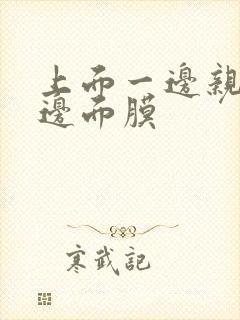 上而一邊親
邊而膜
寒武記